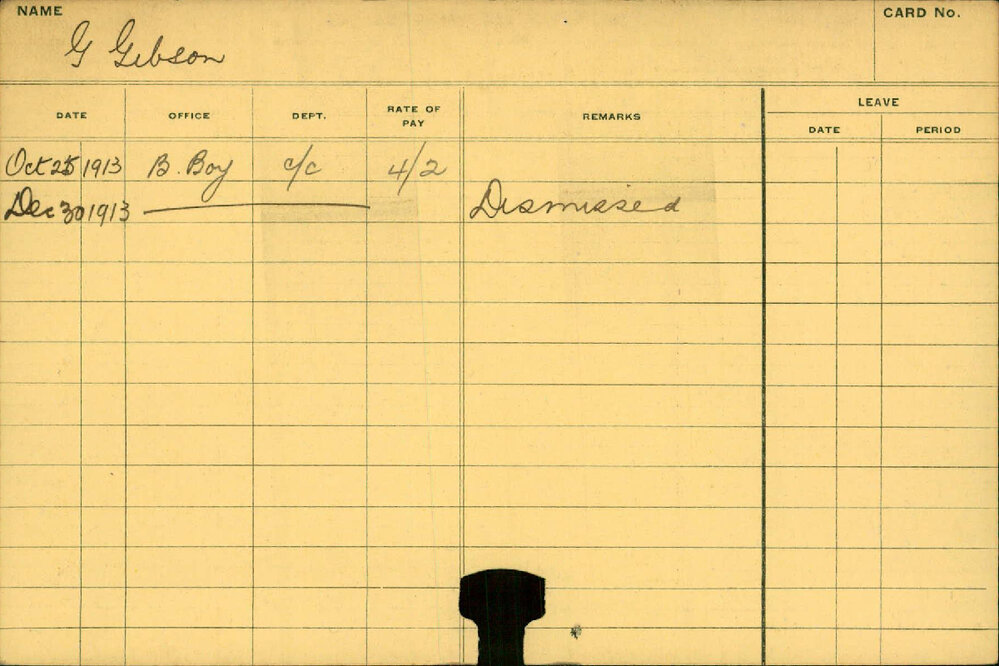 NAME
CARD No.
G Gibson
DATE OFFICE DEPT. RATE OF PAY REMARKS LEAVE
DATE PERIOD
Oct 25 1913 B. Boy c/c 4/2
Dec 30 1913 Dismissed